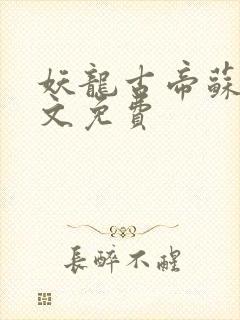 妖龍古帝蘇
文免費
長醉不醒